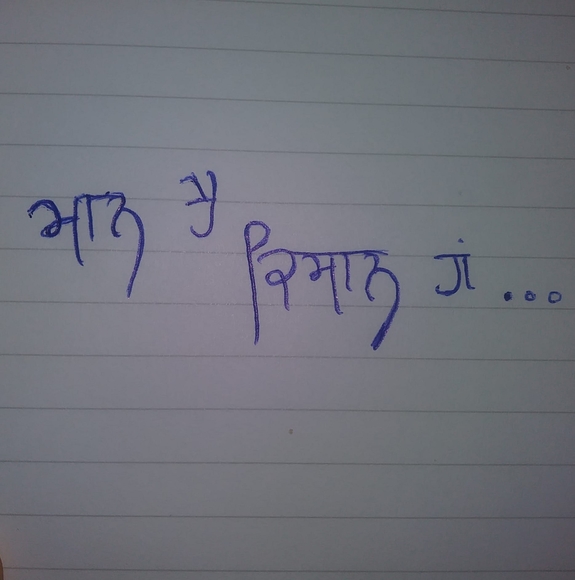 ਮਾਨ ਹੈ
ਕਿਸਾਨ ਹਾਂ...